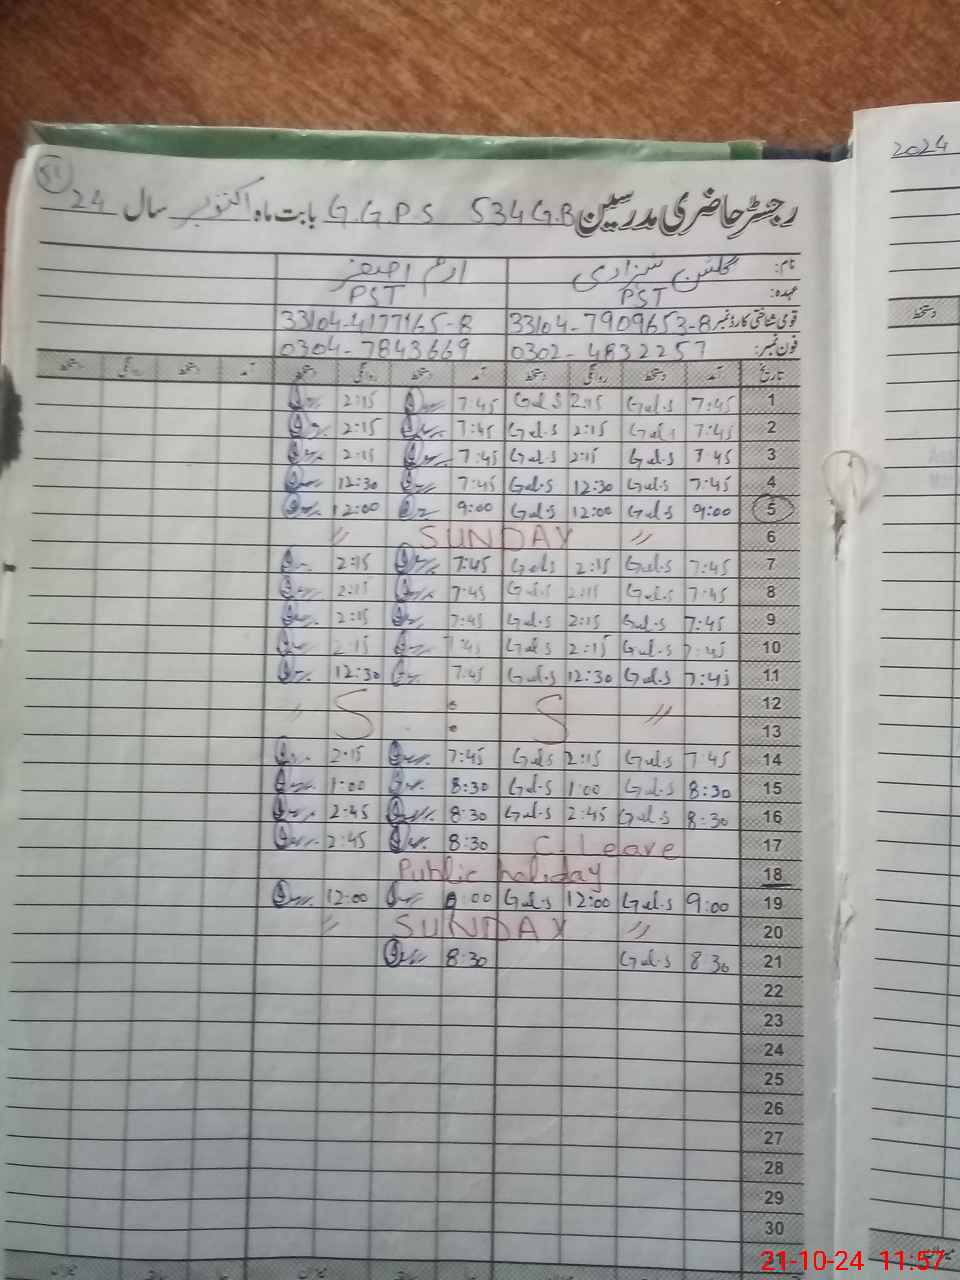 2024
51
رجسٹر حاضری مدرسین G.G.P.S 534 G.B بابت ماہ اکتوبر سال 24
نام: گلشن شہزادی ارم اصغر
عہدہ: PST PST
قومی شناختی کارڈ نمبر 33104-7909653-8 33104-4177165-8
فون نمبر: 0302-4832257 0304-7843669
تاریخ آمد دستخط روانگی دستخط آمد دستخط روانگی دستخط آمد دستخط روانگی دستخط
دستخط
1 7:45 Gul.S 2:15 Gul S 7:45 2:15
2 7:45 Gul.s 2:15 Gul.s 7:45 2:15
3 7:45 Gul.s 2:15 Gul.s 7:45 2:15
4 7:45 Gul.s 12:30 Gul.s 7:45 12:30
5 9:00 Gul.s 12:00 Gul.s 9:00 12:00
6 " SUNDAY "
7 7:45 Gul.s 2:15 Gul.s 7:45 2:15
8 7:45 Gul.s 2:15 Gul.s 7:45 2:15
9 7:45 Gul.s 2:15 Gul.s 7:45 2:15
10 7:45 Gul.s 2:15 Gul.s 7:45 2:15
11 7:45 Gul.s 12:30 Gul.s 7:45 12:30
12
" S : S "
13
14 7:45 Gul.s 2:15 Gul.s 7:45 2:15
15 8:30 Gul.s 1:00 Gul.s 8:30 1:00
16 8:30 Gul.s 2:45 Gul.s 8:30 2:45
17 C Leave 8:30 2:45
18 Public holiday
19 9:00 Gul.s 12:00 Gul.s 9:00 12:00
20 " SUNDAY "
21 8:30 Gul.s 8:30
22
23
24
25
26
27
28
29
30
21-10-24 11:57